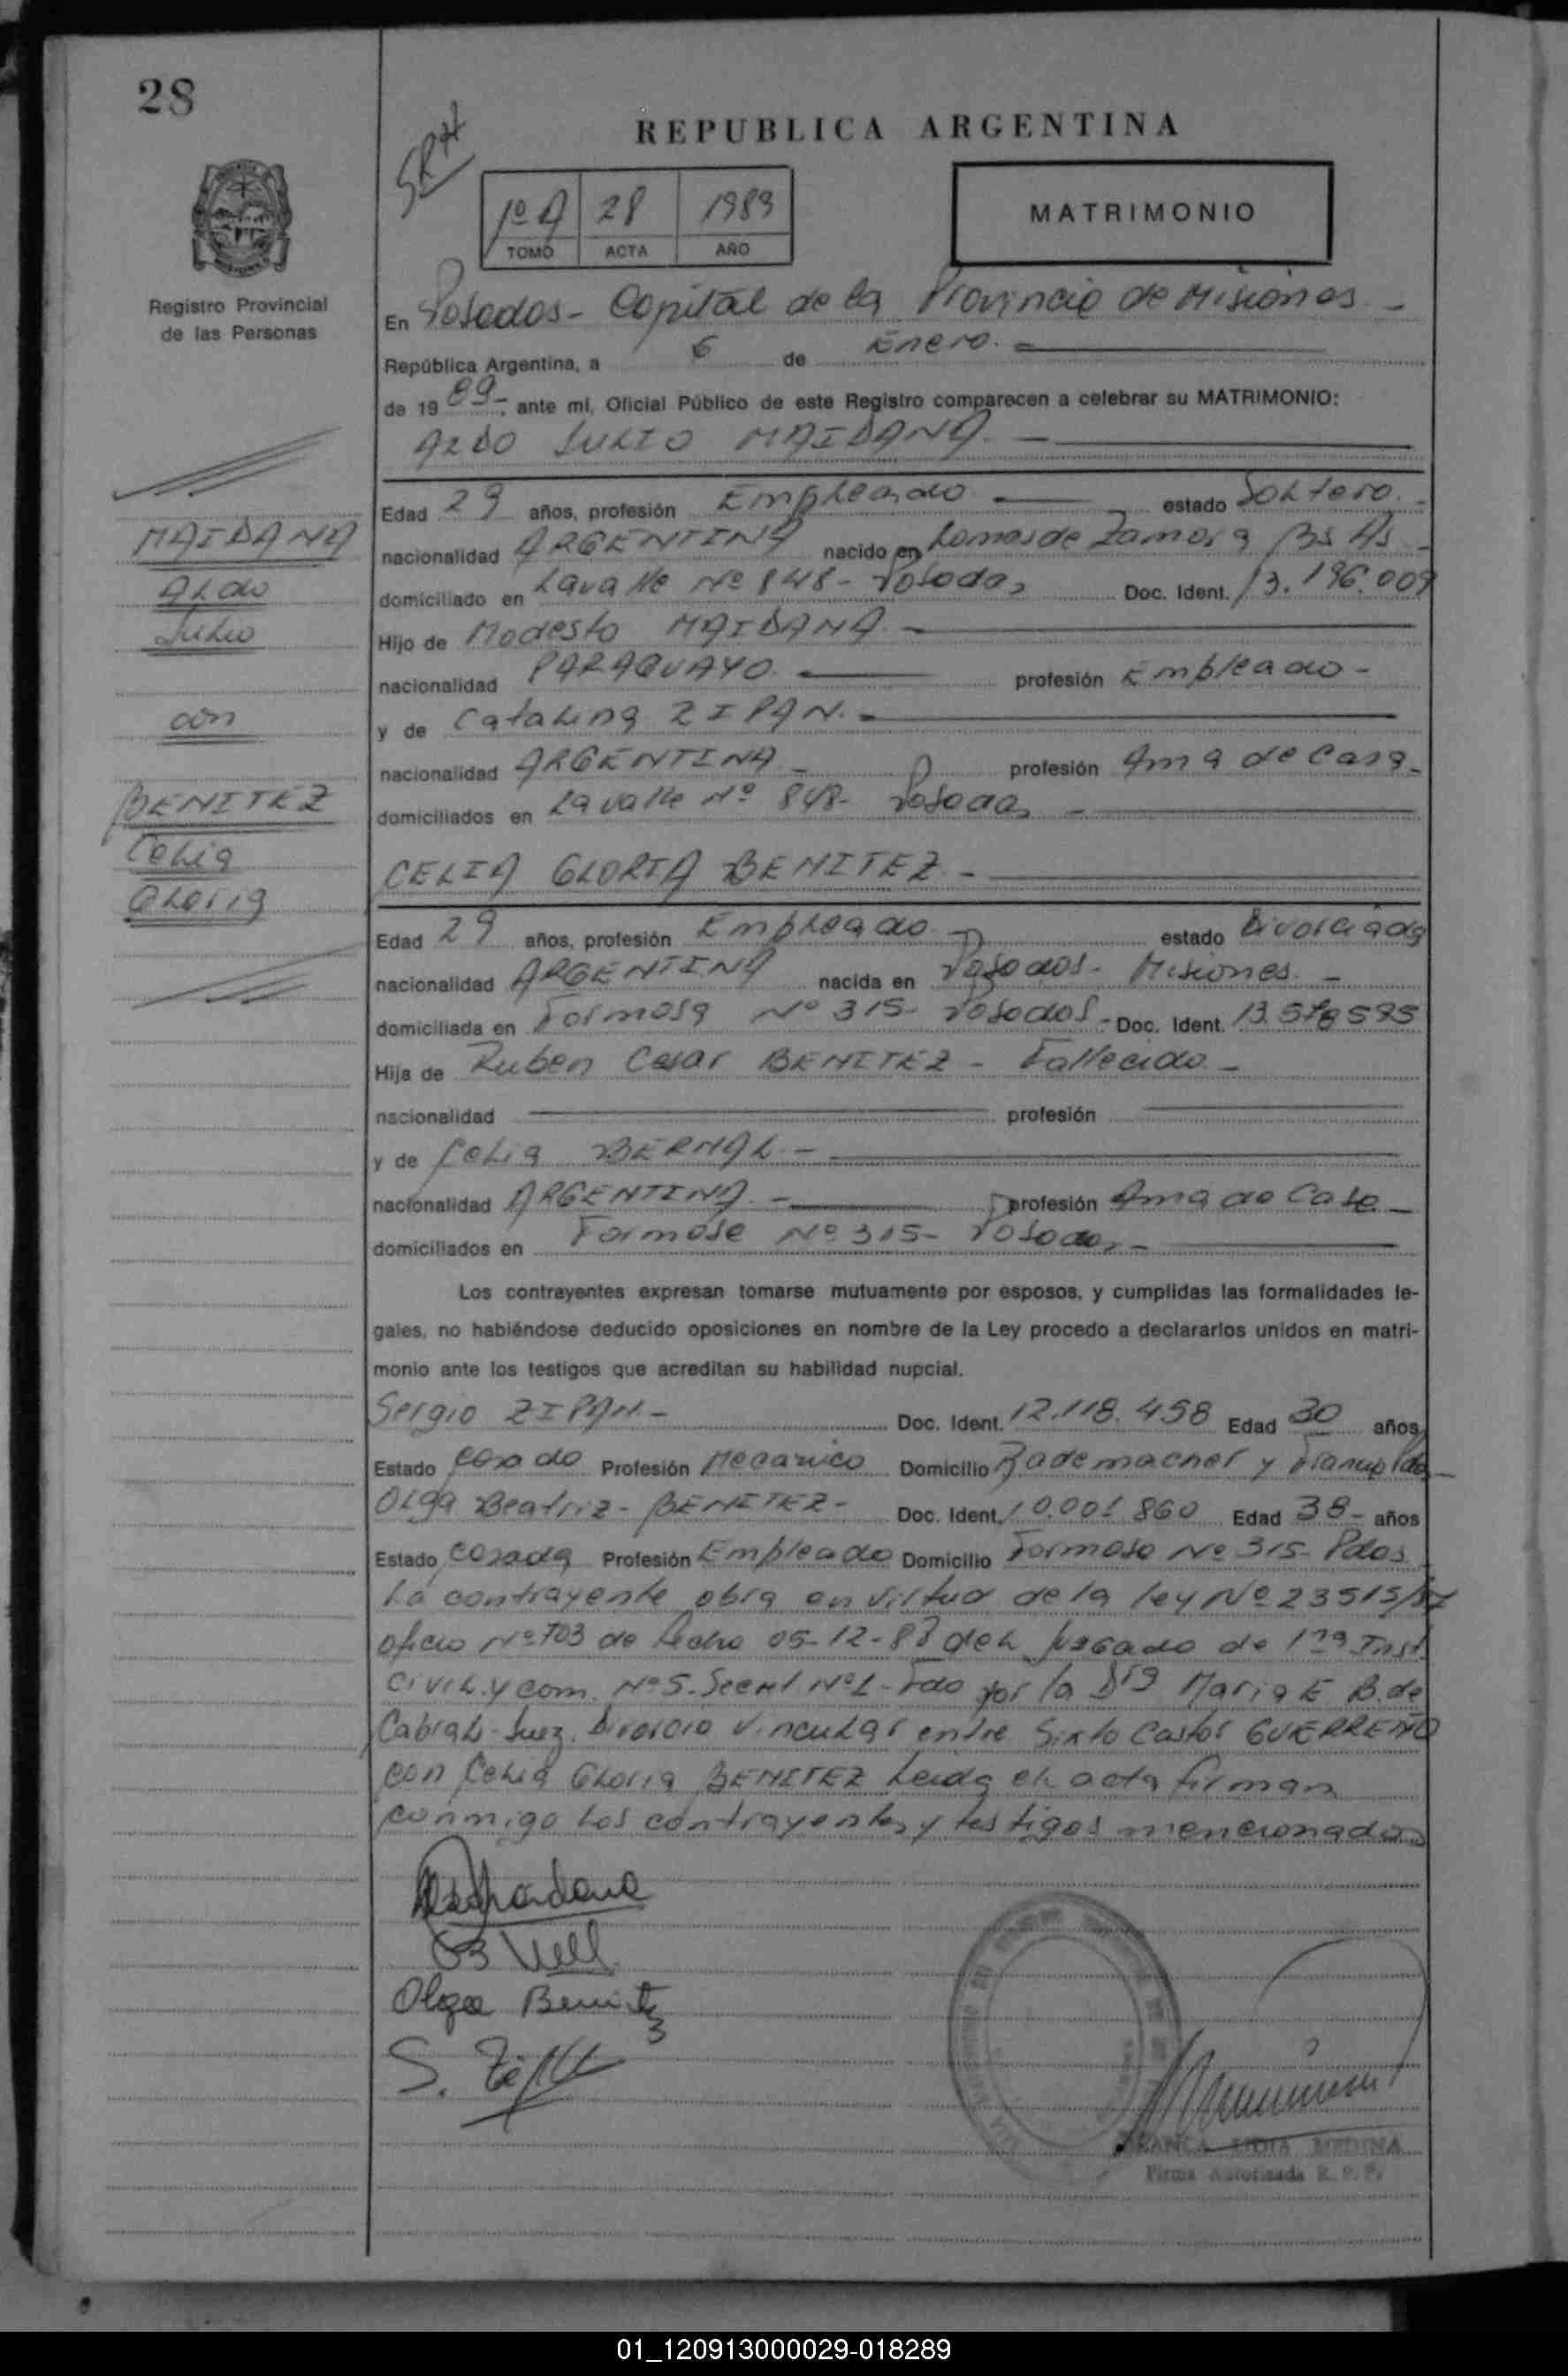 28
REPUBLICA ARGENTINA
1º A 28 1989
TOMO ACTA AÑO
MATRIMONIO
Registro Provincial
de las Personas
En Posadas - Capital de la Provincia de Misiones -
República Argentina, a 6 de Enero. -
de 19 89-, ante mí, Oficial Público de este Registro comparecen a celebrar su MATRIMONIO:
ALDO JULIO MAIDANA. -
Edad 29 años, profesión Empleado - estado Soltero.-
nacionalidad ARGENTINA nacido en Lomas de Zamora Bs As -
domiciliado en Lavalle Nº 848 - Posadas Doc. Ident. 13.196.009
Hijo de Modesto MAIDANA -
nacionalidad PARAGUAYO. - profesión Empleado -
y de Catalina ZIPAN. -
nacionalidad ARGENTINA - profesión Ama de Casa -
domiciliados en Lavalle Nº 848- Posadas -
MAIDANA
Aldo
Julio
con
BENITEZ
Celia
Gloria
CELIA GLORIA BENITEZ. -
Edad 29 años, profesión Empleado - estado Divorciada
nacionalidad ARGENTINA nacida en Posadas - Misiones. -
domiciliada en Formosa Nº 315- Posados - Doc. Ident. 13.578595
Hija de Ruben Cesar BENITEZ - Fallecido -
nacionalidad profesión
y de Celia BERNAL -
nacionalidad ARGENTINA. - profesión Ama de Casa -
domiciliados en Formosa Nº 315- Posadas -
Los contrayentes expresan tomarse mutuamente por esposos, y cumplidas las formalidades le-
gales, no habiéndose deducido oposiciones en nombre de la Ley procedo a declararlos unidos en matri-
monio ante los testigos que acreditan su habilidad nupcial.
Sergio ZIPAN. - Doc. Ident. 12.118.458 Edad 30 años
Estado casado Profesión Mecanico Domicilio Rademacher y
Olga Beatriz - BENITEZ - Doc. Ident. 10.001 860 Edad 38- años
Estado casada Profesión Empleado Domicilio Formosa Nº 315- Pdas
La contrayente obra en virtud de la ley Nº 23515/87
oficio Nº 703 de fecha 05-12-88 del Juzgado de 1ra Inst
Civil y com. Nº 5. Secret Nº 1 - Fdo por la Dra Maria E B. de
Cabral - Juez. Divorcio Vincular entre Sixto Castor GUERREÑO
con Celia Gloria BENITEZ Leida el acta firman
conmigo los contrayentes y testigos mencionados
Olga Benitez
S. Zipan
LIDIA MEDINA
Firma Autorizada R. P. P.
01_120913000029-018289